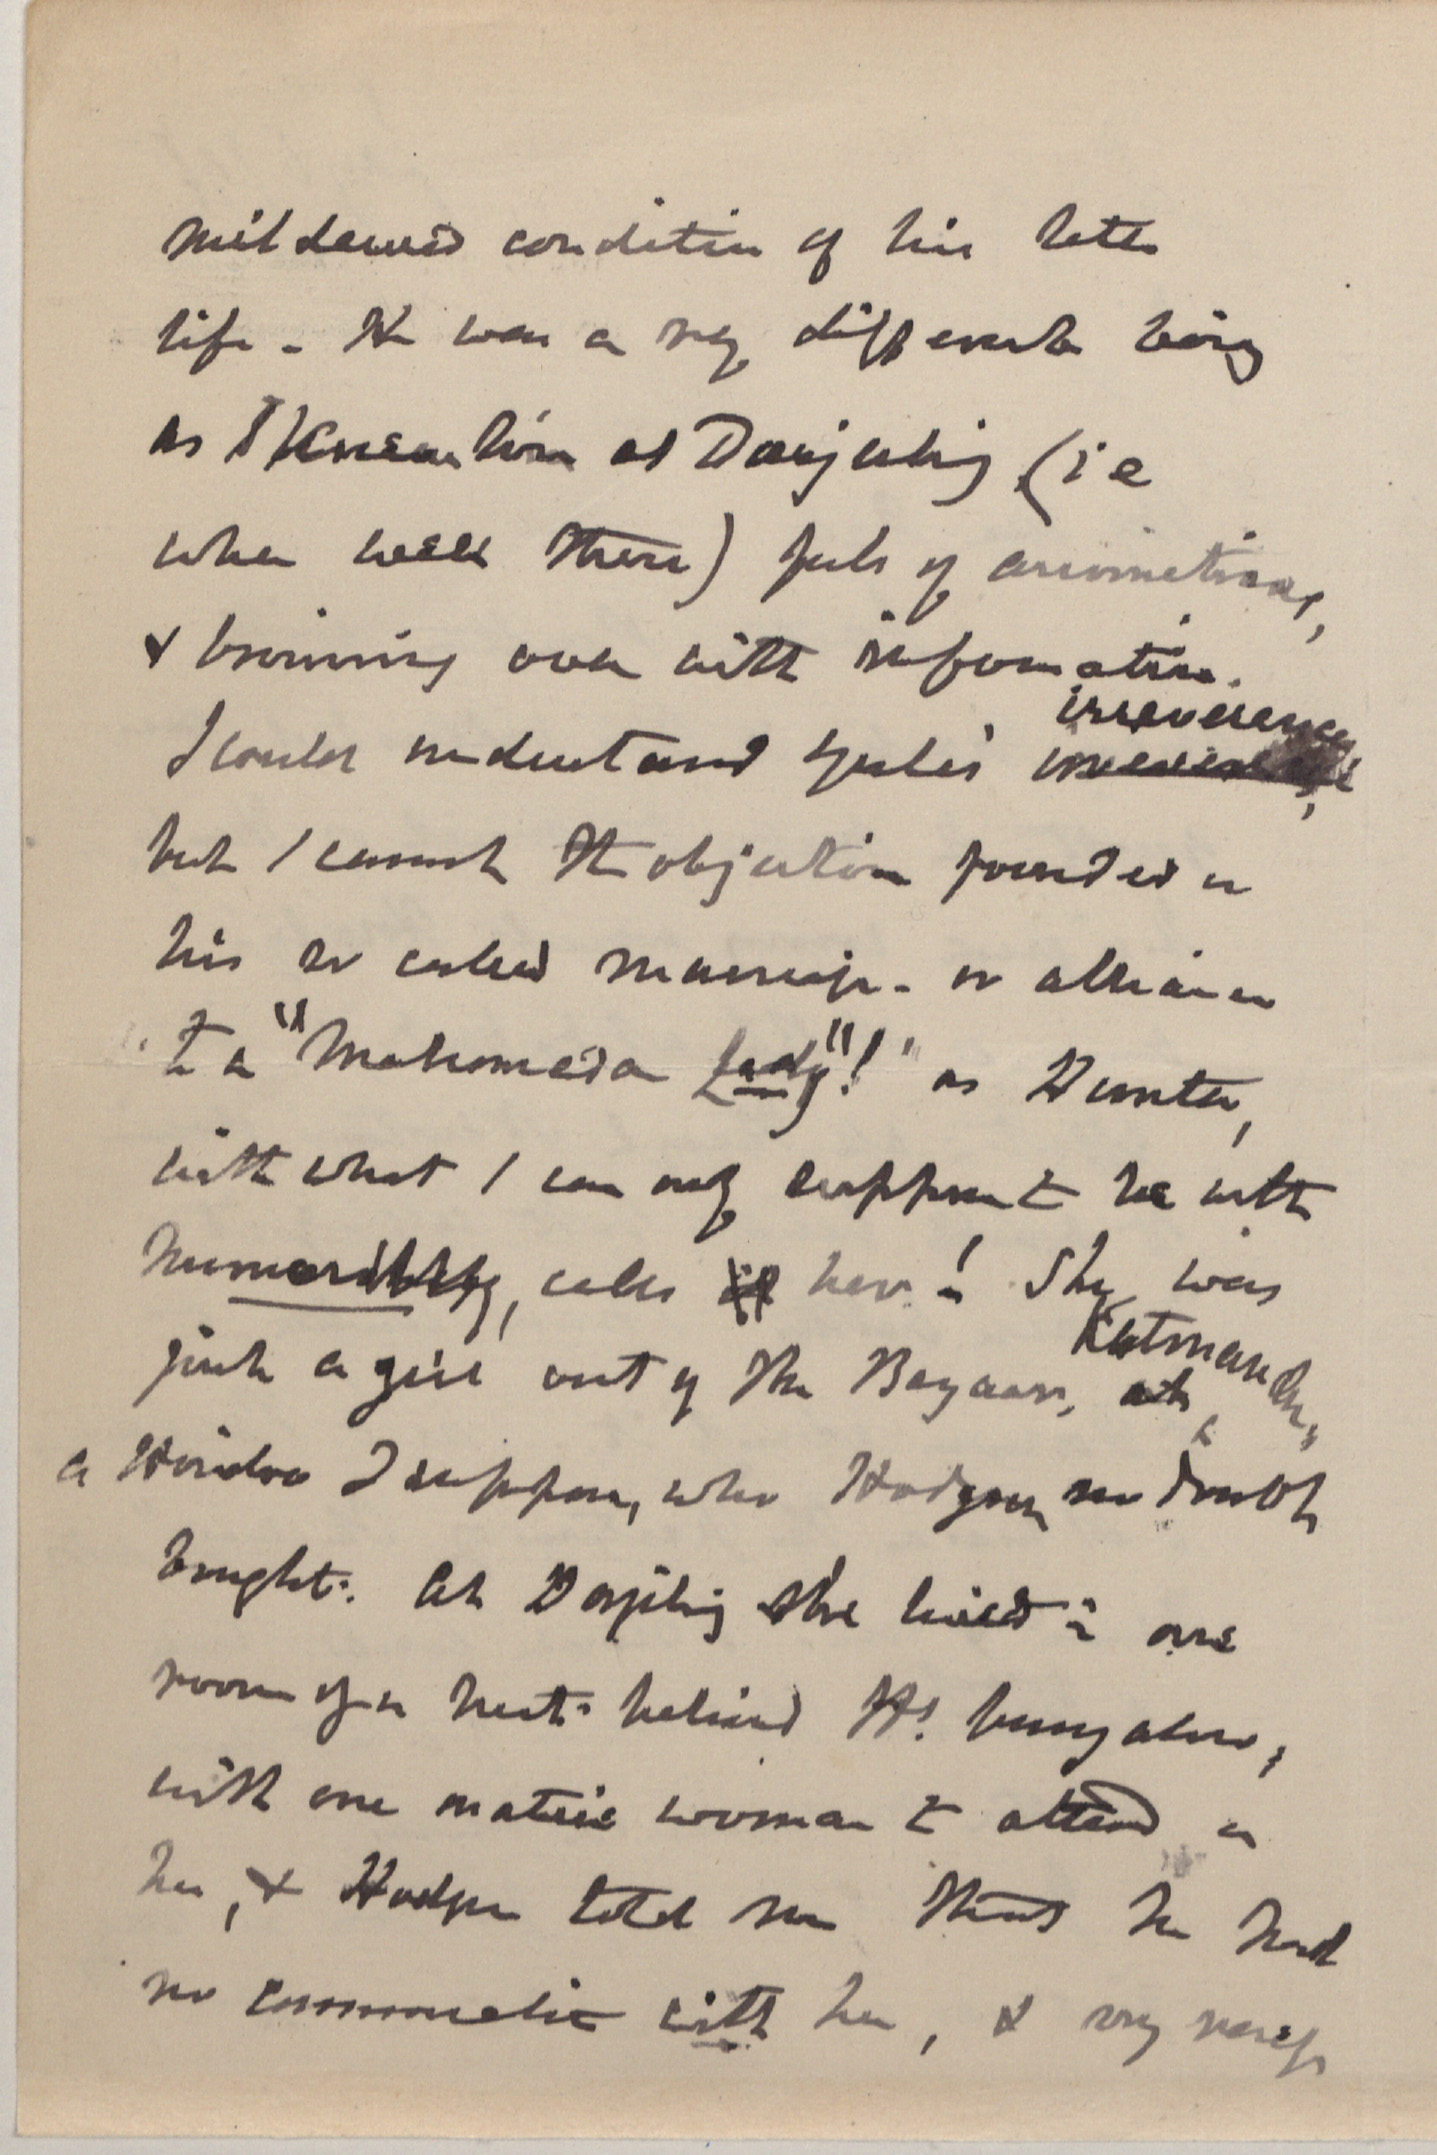 mildewed condition of his later
life - He was a very different being
as I knew him at Darjeeling (ie
when well there) full of animation,
& brimming over with information.
I could understand Yule's irreverence,
but I cannot the objection founded on
his so called marriage - or alliance
to a "Mahomedan Lady"! as Hunter,
with what I can only suppose to be with
calls her! She was
just a girl out of the Bazaar, at Katmandu,
a Hindoo I suppose, who Hodgson no doubt
bought. At Darjeeling she lived in one
room of a hut behind H's bungalow,
with one native woman to attend on
her, & Hodgson told me that he had
no with her, & very rarely